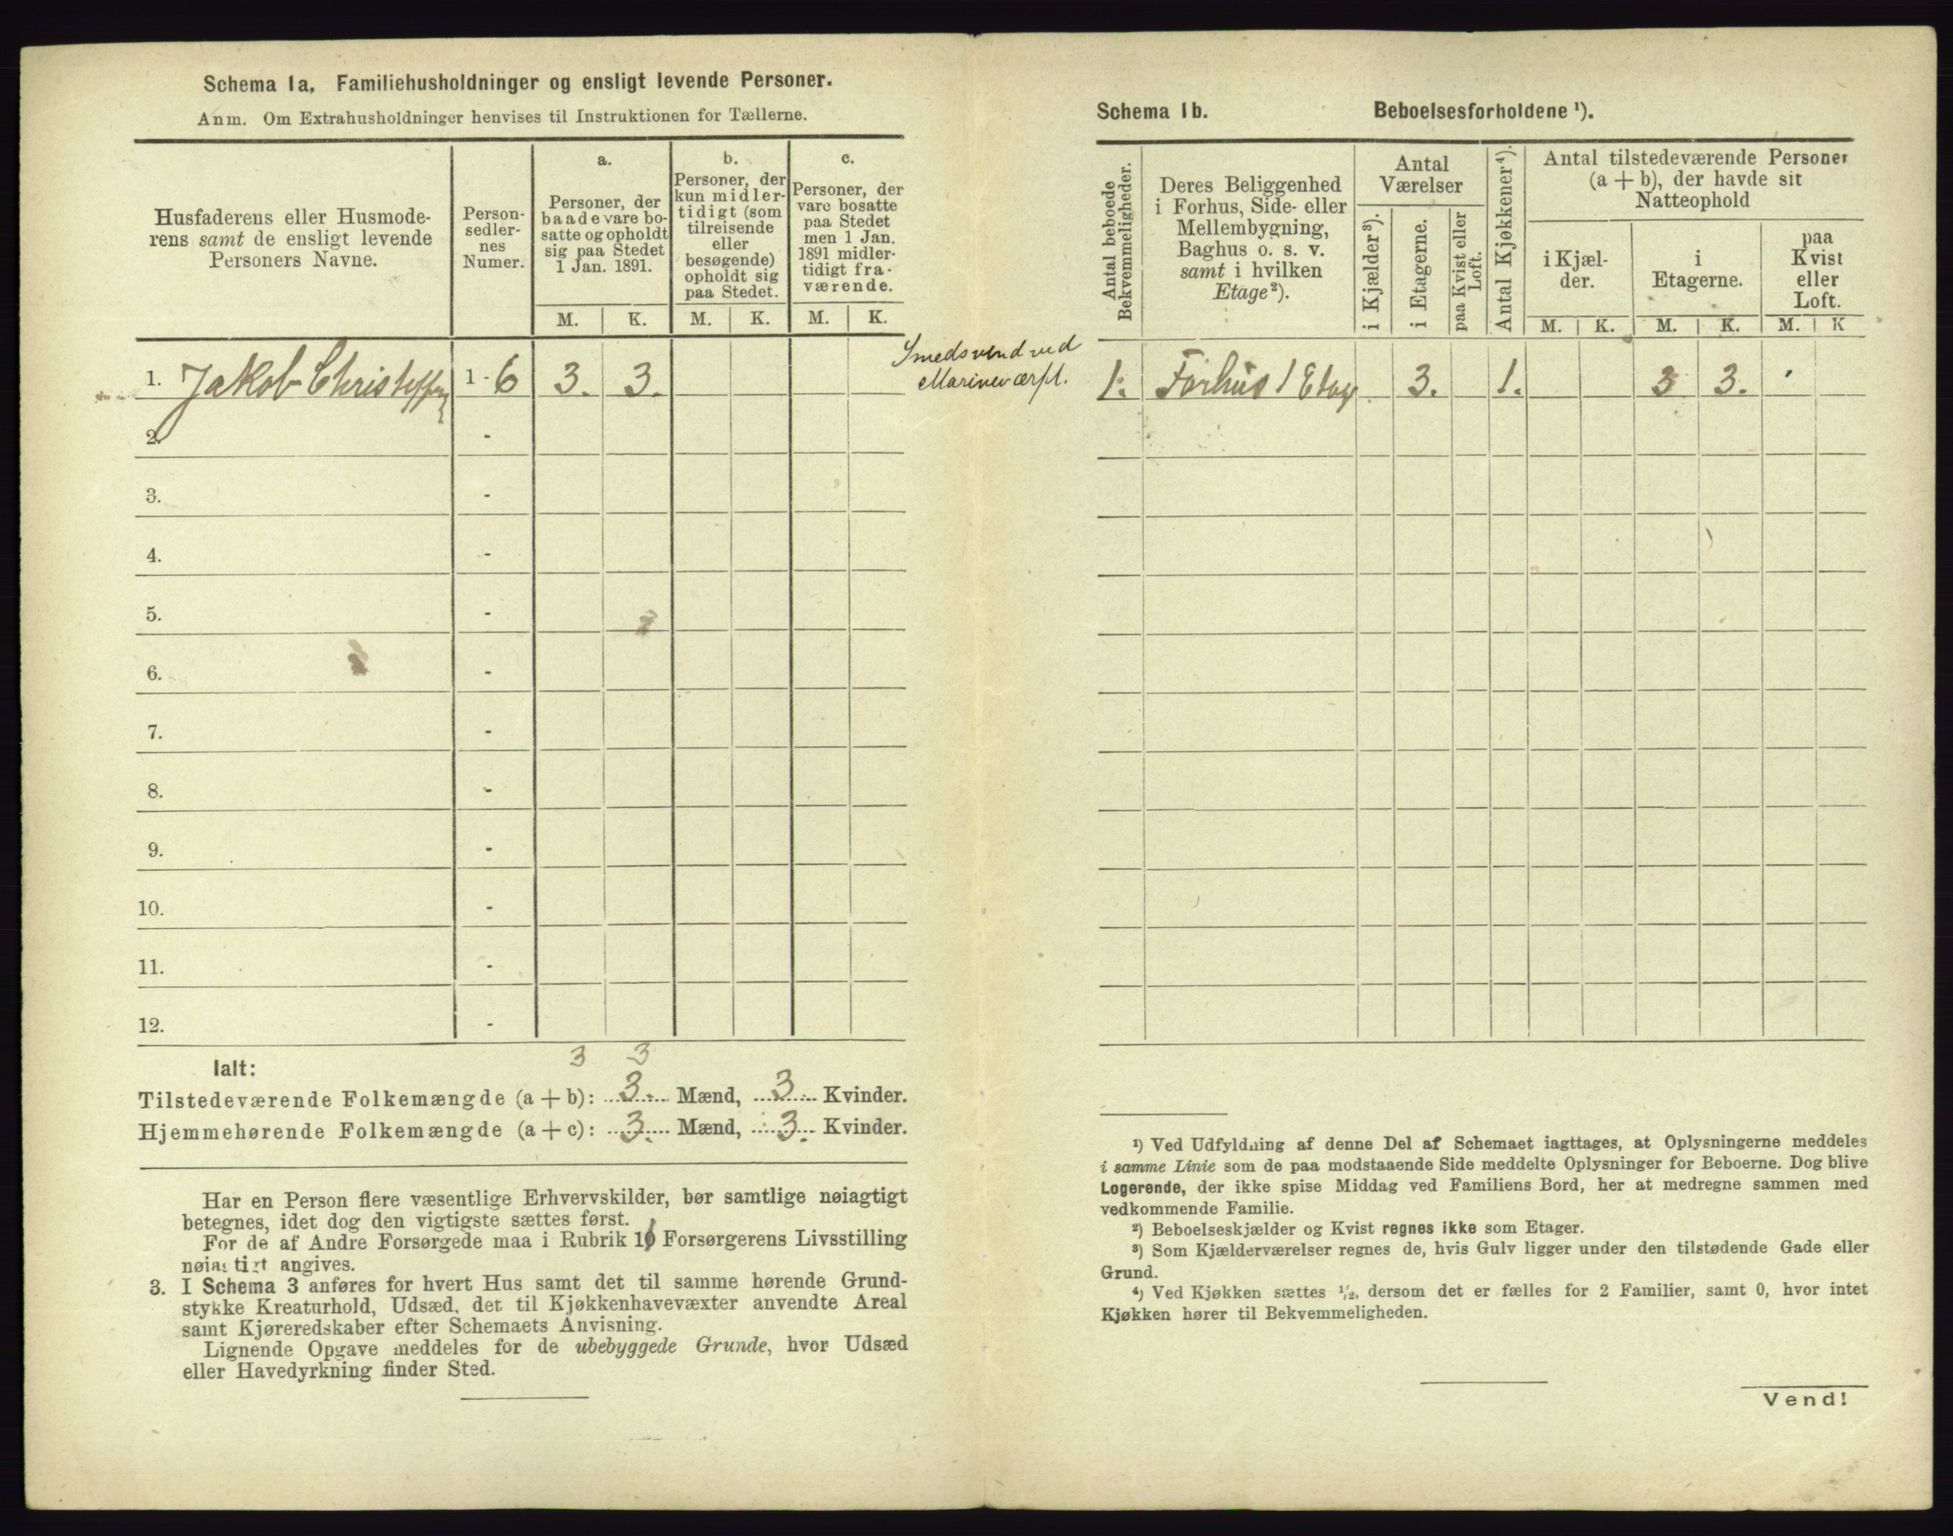 Schema 1a. Familiehusholdninger og ensligt levende Personer.
Anm. Om Extrahusholdninger henvises til Instruktionen for Tællerne.
Husfaderens eller Husmode-
rens samt de ensligt levende
Personers Navne.
Person-
sedler-
nes
Numer.
a.
Personer, der
baade vare bo-
satte og opholdt
sig paa Stedet
1 Jan. 1891.
M. K.
b.
Personer, der
kun midler-
tidigt (som
tilreisende
eller
besøgende)
opholdt sig
paa Stedet.
M. K.
c.
Personer, der
vare bosatte
paa Stedet
men 1 Jan.
1891 midler-
tidigt fra-
værende.
M. K.
1. Jakob 1 - 6 3. 3.
Smedsvend ved
2. -
3. -
4. -
5. -
6. -
7. -
8. -
9. -
10. -
11. -
12. -
3 3
Ialt:
Tilstedeværende Folkemængde (a + b): 3. Mænd, 3. Kvinder.
Hjemmehørende Folkemængde (a + c): 3. Mænd, 3. Kvinder.
Har en Person flere væsentlige Erhvervskilder, bør samtlige nøiagtigt
betegnes, idet dog den vigtigste sættes først.
For de af Andre Forsørgede maa i Rubrik 10 Forsørgerens Livsstilling
nøiagtigt angives.
3. I Schema 3 anføres for hvert Hus samt det til samme hørende Grund-
stykke Kreaturhold, Udsæd, det til Kjøkkenhavevæxter anvendte Areal
samt Kjøreredskaber efter Schemaets Anvisning.
Lignende Opgave meddeles for de ubebyggede Grunde, hvor Udsæd
eller Havedyrkning finder Sted.
Schema 1b. Beboelsesforholdene ¹).
Antal beboede
Bekvemmeligheder.
Deres Beliggenhed
i Forhus, Side- eller
Mellembygning,
Baghus o. s. v.
samt i hvilken
Etage²).
Antal
Værelser
i Kjælder³).
i Etagerne.
paa Kvist eller
Loft.
Antal Kjøkkener⁴).
Antal tilstedeværende Personer
(a + b), der havde sit
Natteophold
i Kjæl-
der.
M. K.
i
Etagerne.
M. K.
paa
Kvist
eller
Loft.
M. K
1. Forhus 1 Etag 3. 1. 3 3.
¹) Ved Udfyldning af denne Del af Schemaet iagttages, at Oplysningerne meddeles
i samme Linie som de paa modstaaende Side meddelte Oplysninger for Beboerne. Dog blive
Logerende, der ikke spise Middag ved Familiens Bord, her at medregne sammen med
vedkommende Familie.
²) Beboelseskjælder og Kvist regnes ikke som Etager.
³) Som Kjælderværelser regnes de, hvis Gulv ligger under den tilstødende Gade eller
Grund.
⁴) Ved Kjøkken sættes ½, dersom det er fælles for 2 Familier, samt 0, hvor intet
Kjøkken hører til Bekvemmeligheden.
Vend!